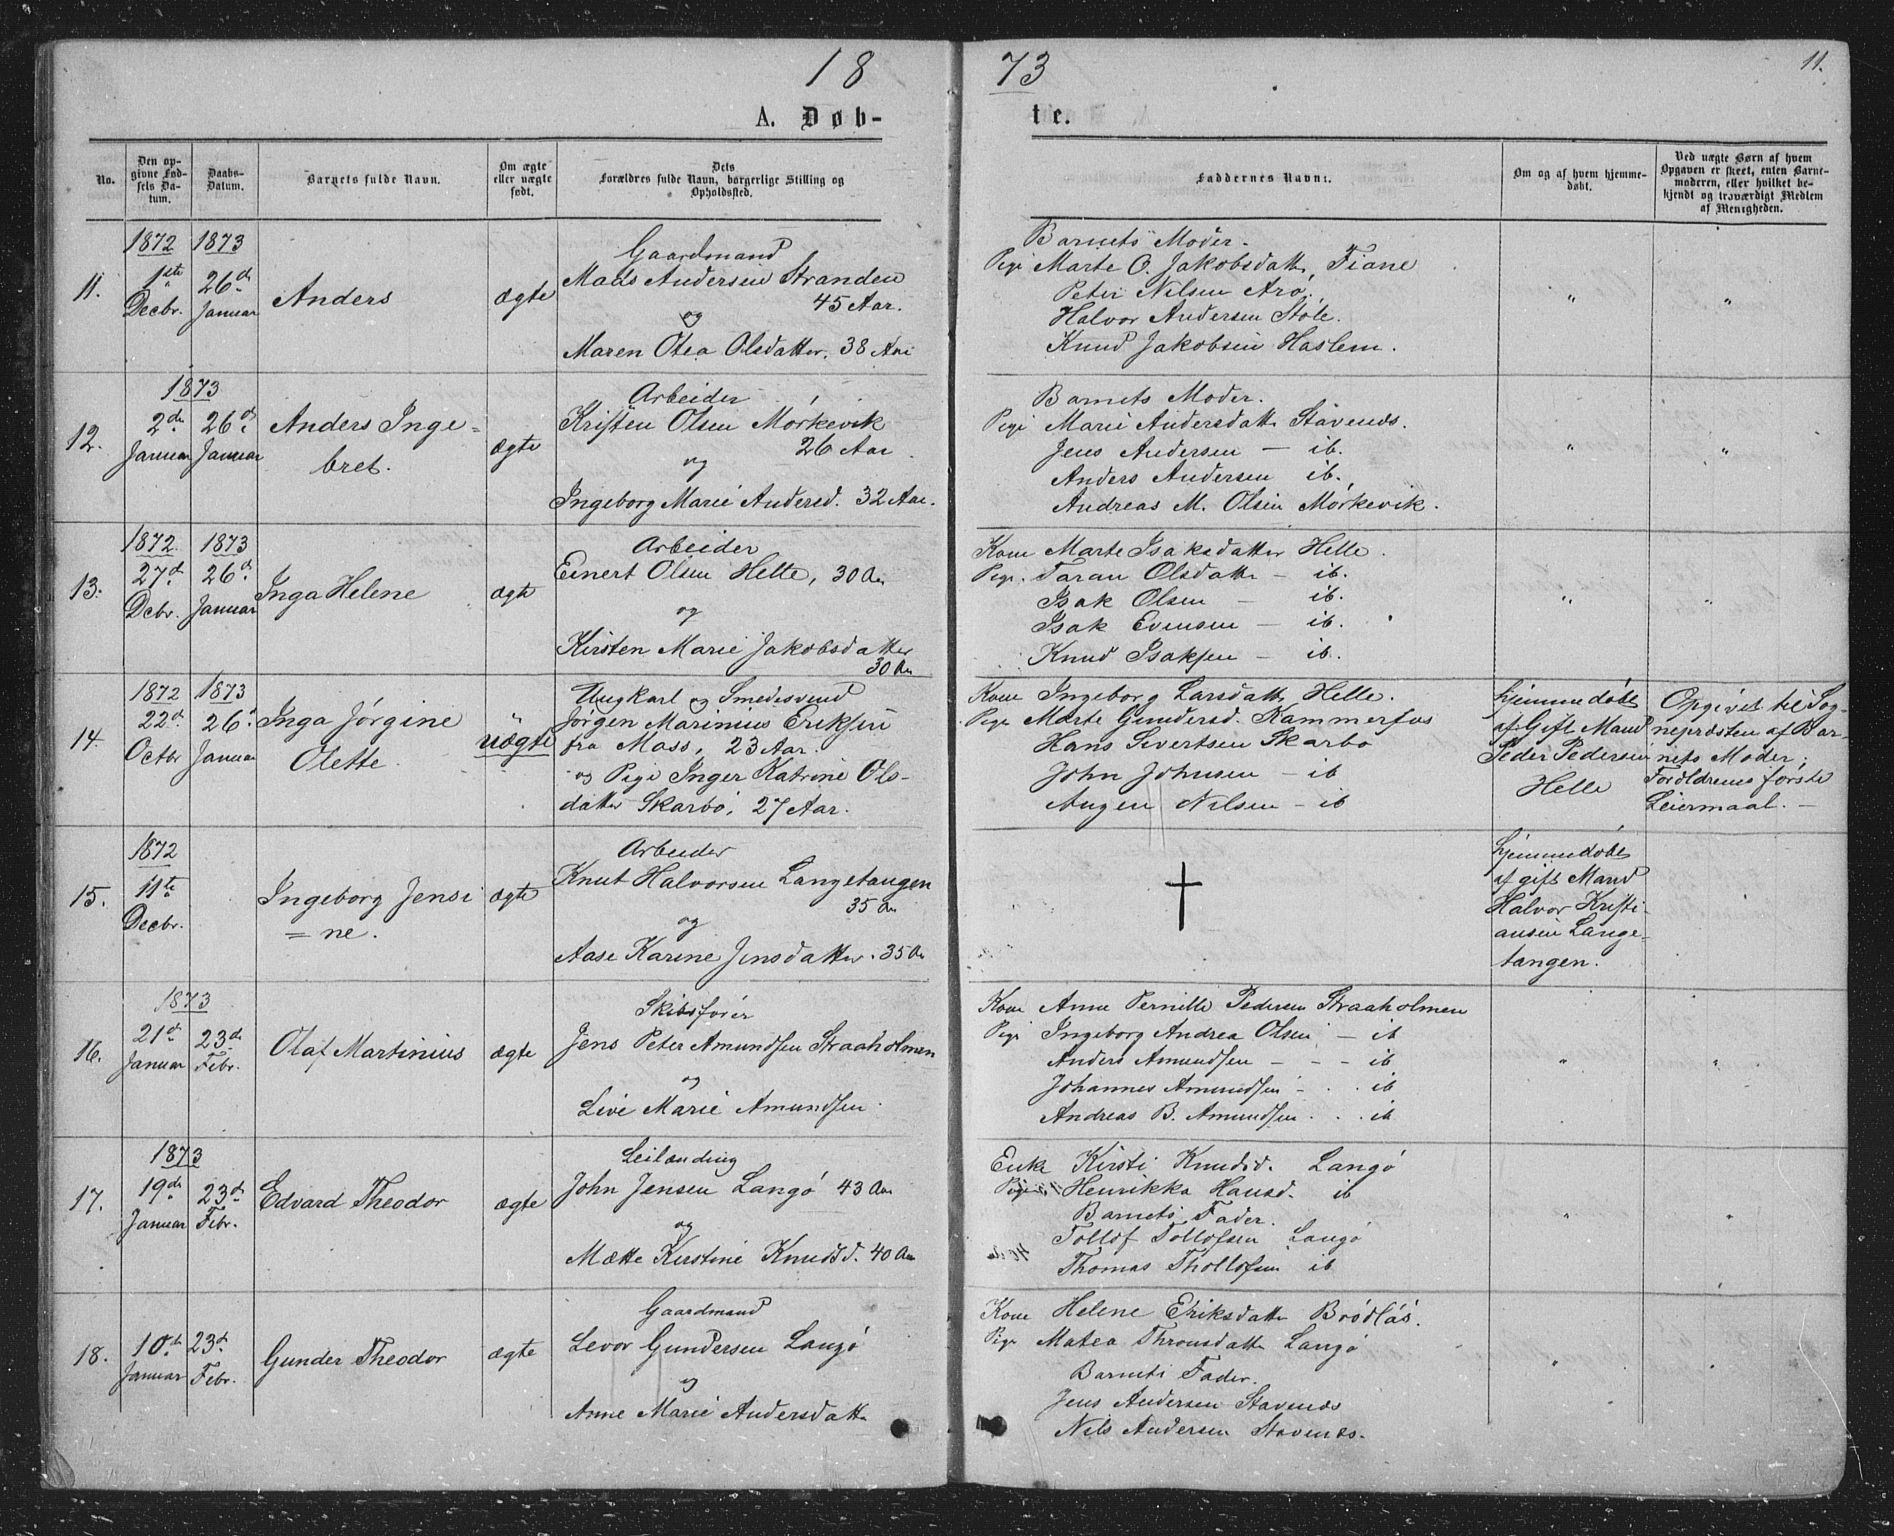 18
73
11.
A. Døb-
te.
No.
Den op-
givne Fød-
sels Da-
tum.
Daabs-
Datum.
Barnets fulde Navn.
Om ægte
eller uægte
født.
Dets
Forældres fulde Navn, borgerlige Stilling og
Opholdssted.
Faddernes Navne.
Om og af hvem hjemme-
døbt.
Ved uægte Børn af hvem
Opgaven er skeet, enten Barne-
moderen, eller hvilket be-
kjendt og troværdigt Medlem
af Menigheden.
11.
1872
1ste
Decbr.
1873
26de
Januar
Anders
ægte
Gaardmand
Mads Andersen Stranden
45 Aar.
og
Maren Otea Olsdatter. 38 Aar
Barnets Moder.
Pige Marte O. Jakobsdatt. Fiane
Peter Nilsen Arø.
Halvor Andersen Støle.
Knud Jakobsen Haslem.
"
"
12.
1873
2den
Januar
26de
Januar
Anders Inge=
bret.
ægte
Arbeider
Kristen Olsen Mørkevik
26 Aar
og
Ingeborg Marie Andersd. 32 Aar.
Barnets Moder.
Pige Marie Andersdatt. Stavenæs.
Jens Andersen — ib.
Anders Andersen ib.
Andreas M. Olsen Mørkevik.
"
"
13.
1872.
27de
Decbr.
1873
26de
Januar
Inga Helene
ægte
Arbeider
Einert Olsen Helle, 30 Aar
og
Kirsten Marie Jakobsdatter
30 Aar
Kone Marte Isaksdatter Helle.
Pige. Taran Olsdatt. — ib.
Isak Olsen — ib.
Isak Evensen — ib.
Knud Isaksen — ib.
"
"
14.
1872
22de
Octbr
1873
26de
Januar
Inga Jørgine
Olette.
uægte
Ungkarl og Smedesvend
Jørgen Marinius Eriksen
fra Moss, 23 Aar.
og Pige Inger Katrine Ols-
datter Skarbo, 27 Aar.
Kone Ingeborg Larsdatt. Helle.
Pige Marte Gundersd. Kammerfos
Hans Sivertsen Skarbo
John Johnsen — ib
Augen Nilsen — ib
hjemmedøbt
af Gift Mand
Peder Pedersen
Helle
Opgivet til Sog-
nepræsten af Bar-
nets Moder;
Forældrenes første
Leiermaal. —
15.
1872
11te
Decbr.
Ingeborg Jensi
=ne.
ægte
Arbeider
Knut Halvorsen Langetangen
35 Aar
og
Aase Karine Jensdatter. 35 Aar
hjemmedøbt
af gift Mand
Halvor Kristi-
ansen Lange-
tangen.
16.
1873
21de
Januar
23de
Febr.
Olaf Martinius
ægte
Skibsfører
Jens Peter Amundsen Straaholmen
og
Live Marie Amundsen.
Kone Anne Pernille Pedersen Straaholmen
Pige Ingeborg Andrea Olsen — ib
Anders Amundsen - - - ib
Johannes Amundsen - . . ib
Andreas B. Amundsen . . . ib
"
"
17.
1873
19de
Januar
23de
Febr.
Edvard Theodor
ægte
Leilænding
John Jensen Langø 43 Aar
og
Mætte Kirstine Knudsd. 40 Aar
Enke Kirsti Knudsd. Langø
Pige Henrikka Hansd. ib
Barnets Fader.
Tollof Tollofsen Langø
Thomas Thollofsen ib
"
"
18.
10de
Januar
23de
Febr.
Gunder Theodor
ægte
Gaardmand
Levor Gundersen Langø
og
Anne Marie Andersdatt.
Kone Helene Eriksdatt. Brødløs.
Pige Matea Thronsdatt. Langø
Barnets Fader.
Jens Andersen Stavenæs
Nils Andersen Stavenæs.
"
"